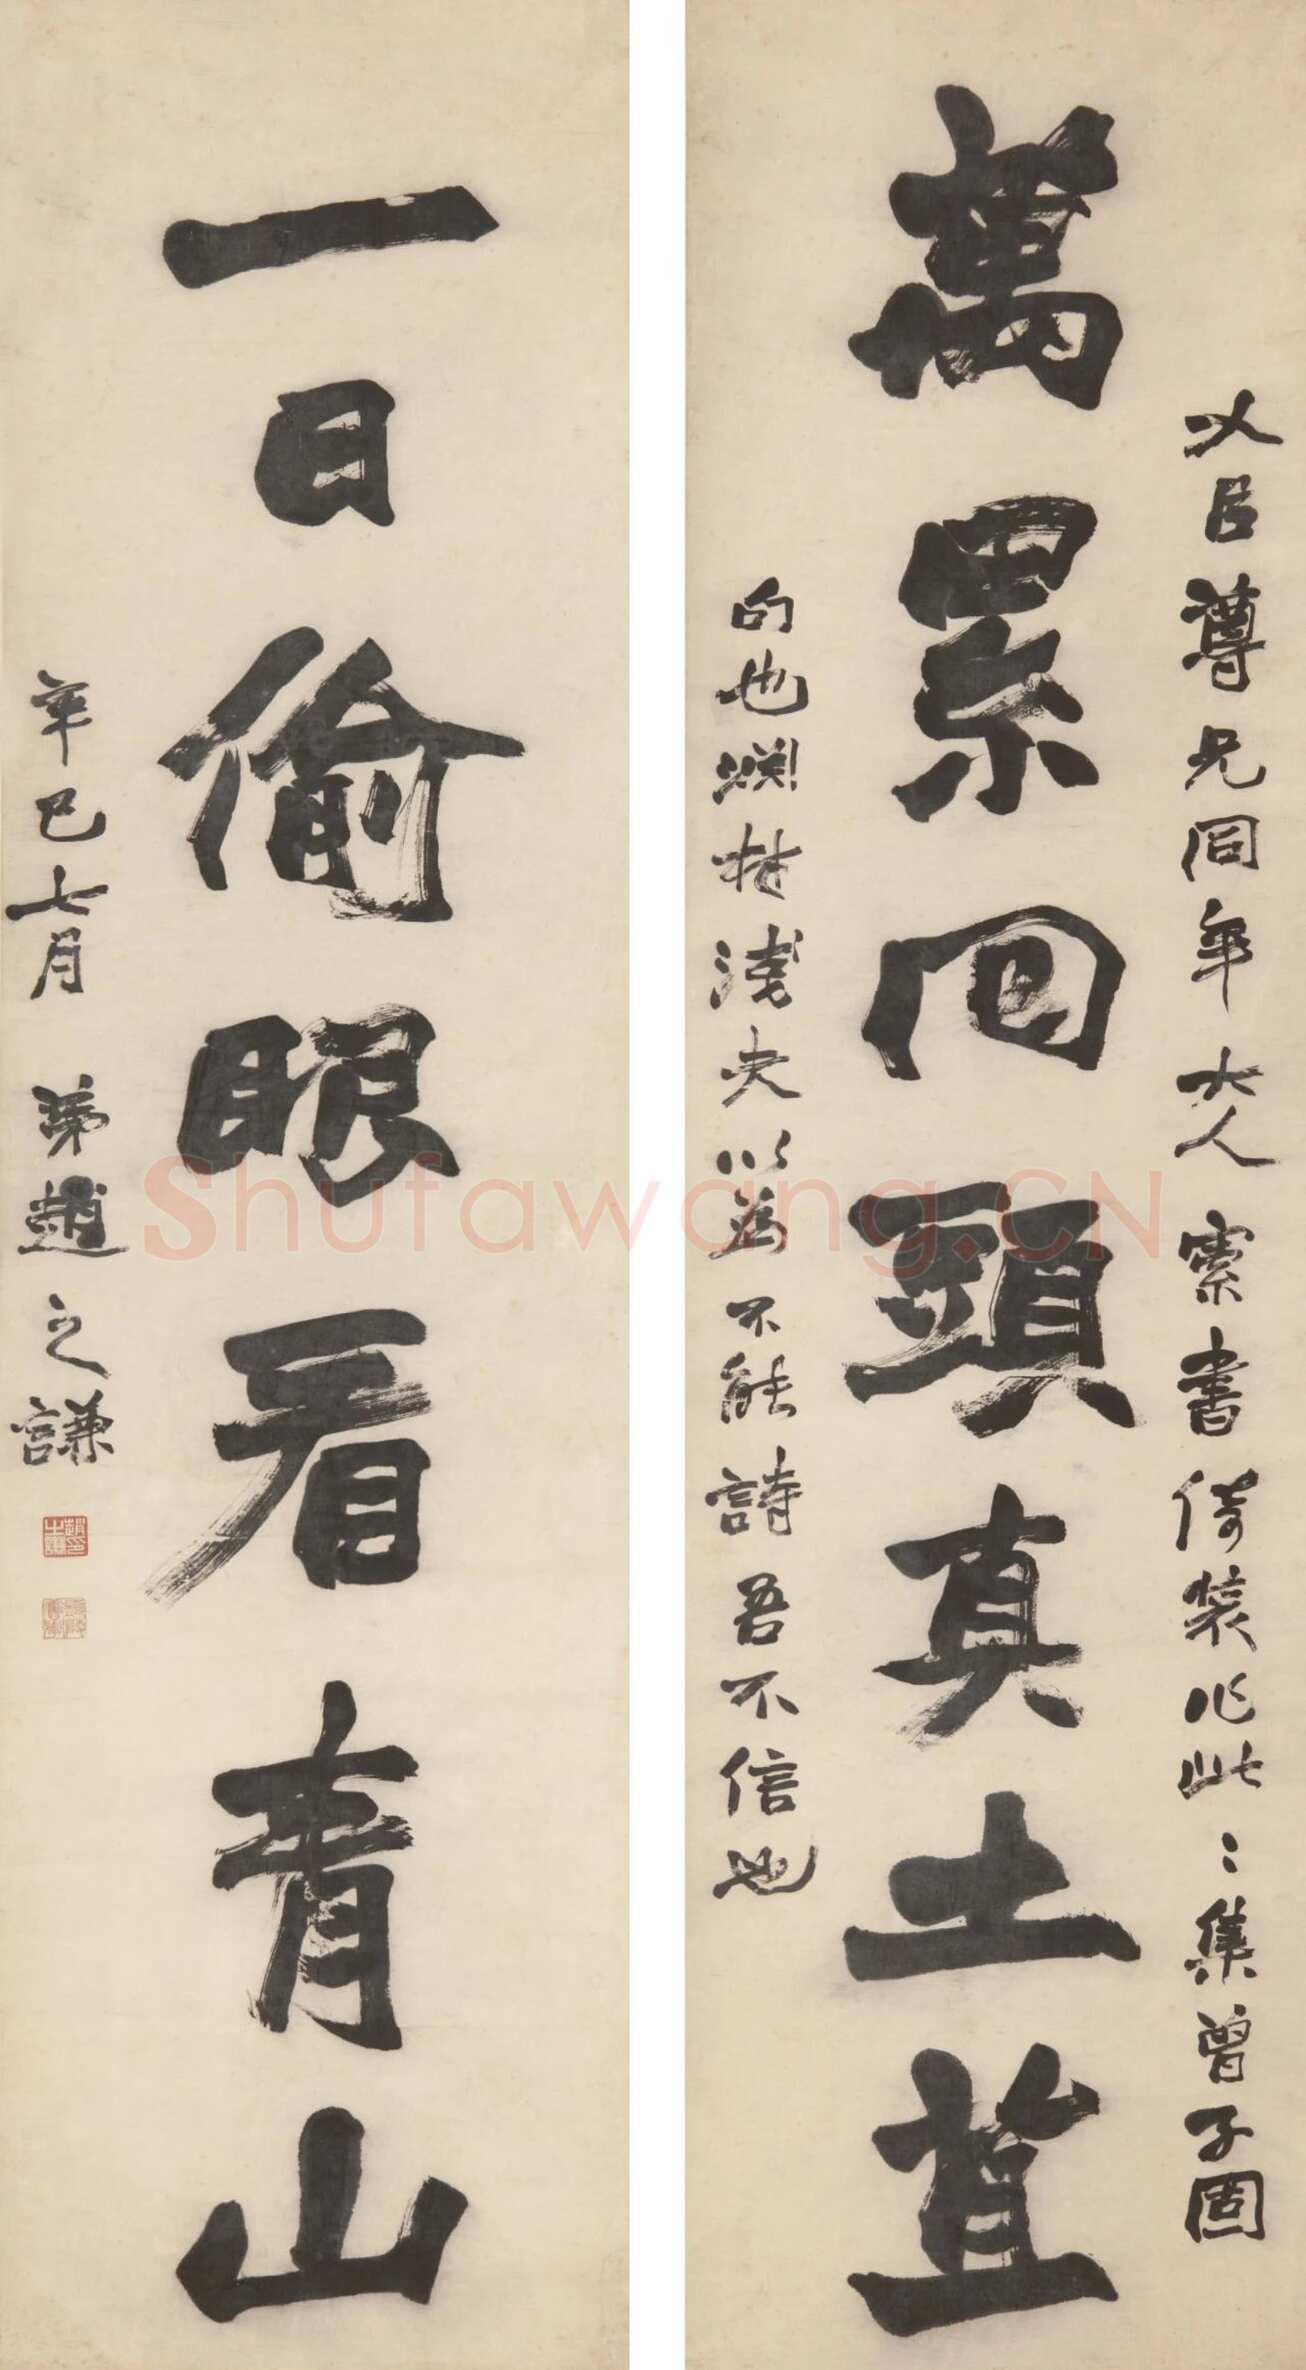 乂臣尊兄同年大人索書倚裝作此：集曾子固
萬累回頭真土苴
句也爛村淺夫以為不能詩吾不信也
一日偷眼看青山
辛巳七月弟趙之謙
Shufawang.CN